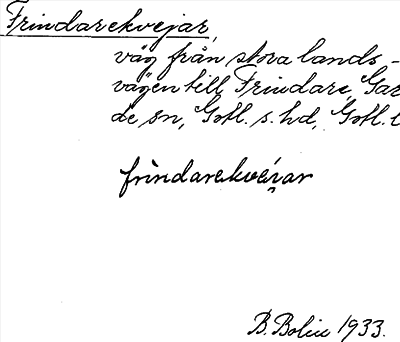 Frindarekvejar,
väg från stora lands-
vägen till Frindare, Gar
de sn, Gotl. s. hd, Gotl. l
frindarekvéi̯ar
B. Bolin 1933.